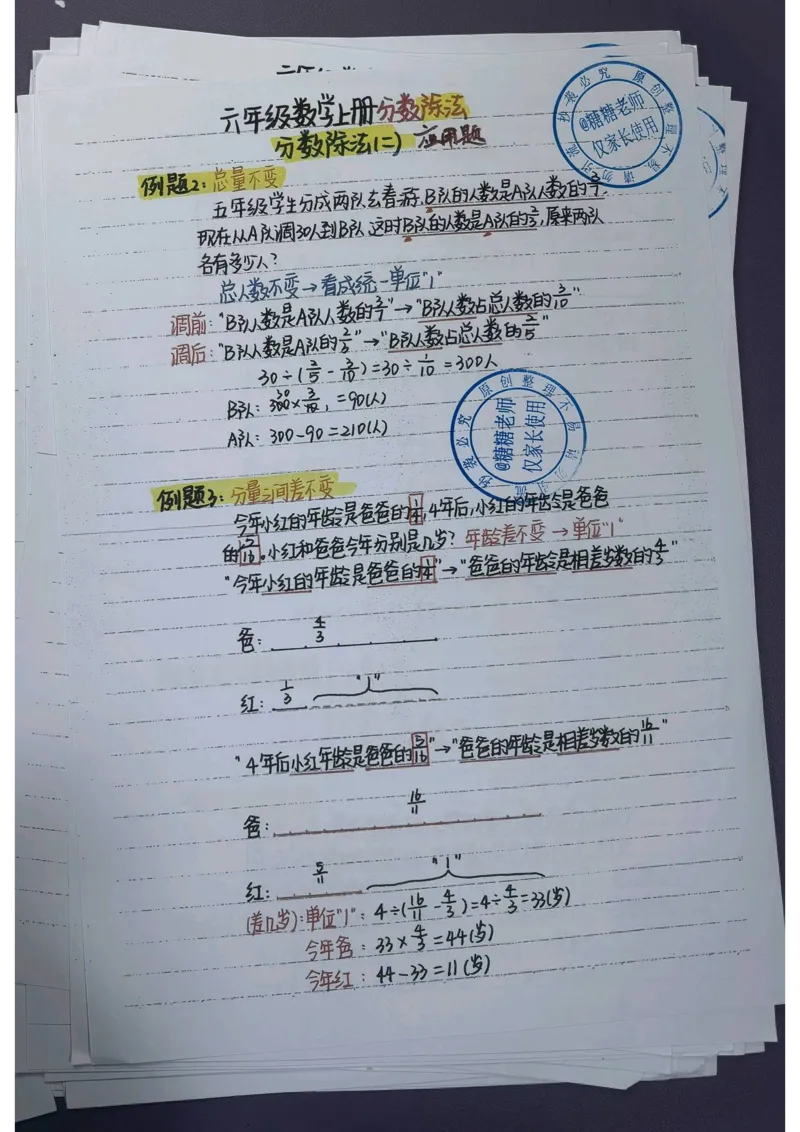 六年级数学上册分数除法
分数除法(二) 应用题
例题2：总量不变
五年级学生分成两队去春游，B队的人数是A队人数的3/7，
现在从A队调30人到B队，这时B队的人数是A队的2/3，原来两队
各有多少人？
总人数不变→看成统一单位"1"
调前："B队人数是A队人数的3/7"→"B队人数占总人数的3/10"
调后："B队人数是A队的2/3"→"B队人数占总人数的2/5"
30÷(2/5-3/10)=30÷1/10=300人
B队：300×3/10，=90(人)
A队：300-90=210(人)
例题3：分量之间差不变
今年小红的年龄是爸爸的1/4，4年后，小红的年龄是爸爸
的5/16。小红和爸爸今年分别是几岁？年龄差不变→单位"1"
"今年小红的年龄是爸爸的1/4"→"爸爸的年龄是相差岁数的4/3"
爸： 4/3
红： 1/3 "1"
"4年后小红年龄是爸爸的5/16"→"爸爸的年龄是相差岁数的16/11"
爸： 16/11
红： 5/11 "1"
(差几岁)：单位"1"：4÷(16/11-4/3)=4÷4/3=33(岁)
今年爸：33×4/3=44(岁)
今年红：44-33=11(岁)
@糖糖老师
仅家长使用
原创整理不易请勿引流抄袭必究
@糖糖老师
仅家长使用